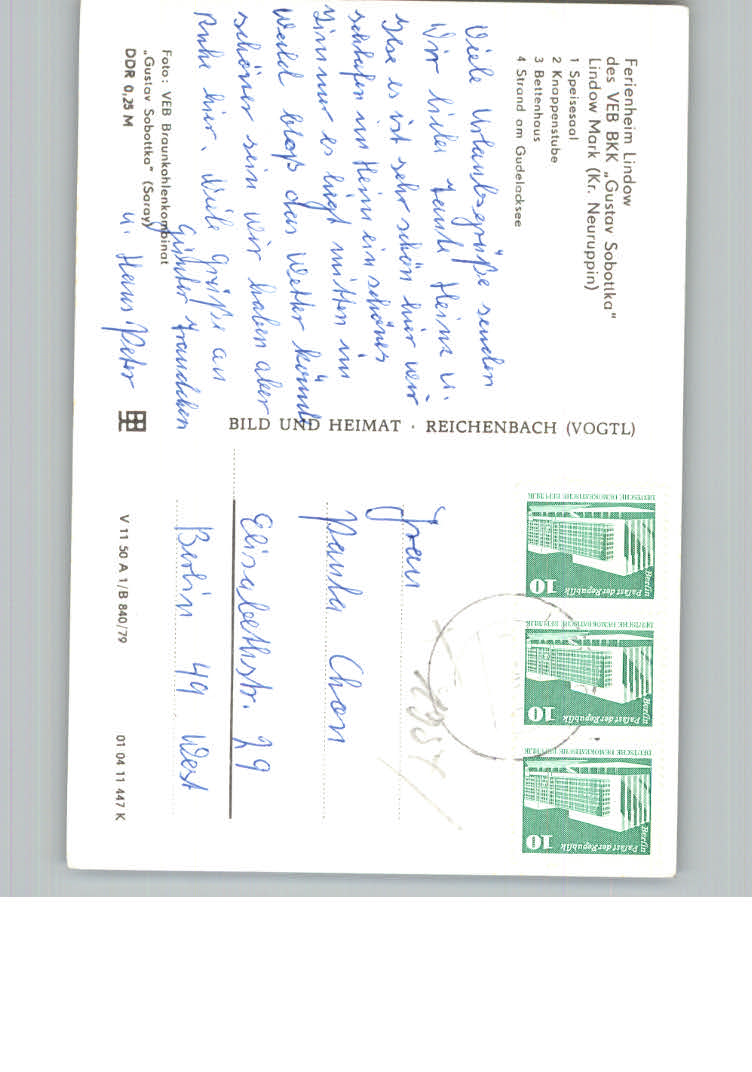 Ferienheim Lindow
des VEB BKK „Gustav Sobottka"
Lindow Mark (Kr. Neuruppin)
1 Speisesaal
2 Knappenstube
3 Bettenhaus
4 Strand am Gudelacksee
Viele Urlaubsgrüße senden
Wir liebe Tante Heinz u.
Ilse es ist sehr schön hier wir
schlafen im Heim ein schönes
Zimmer es liegt mitten im
Wald bloß das Wetter könnte
schöner sein wir haben aber
Ruhe hier. Viele Grüße an
Günter Traudchen
u. Hans Peter
Foto: VEB Braunkohlenkombinat
„Gustav Sobottka" (Saray)
DDR 0,25 M
BILD UND HEIMAT · REICHENBACH (VOGTL)
DEUTSCHE DEMOKRATISCHE REPUBLIK
Berlin Palast der Republik
10
DEUTSCHE DEMOKRATISCHE REPUBLIK
Berlin Palast der Republik
10
DEUTSCHE DEMOKRATISCHE REPUBLIK
Berlin Palast der Republik
10
Frau
Paula Chon
Elisabethstr. 29
Berlin 49 West
V 11 50 A 1/B 840/79
01 04 11 447 K